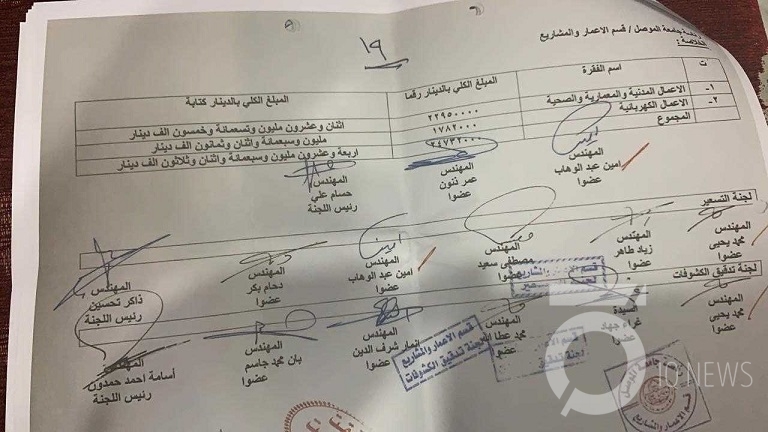 رئاسة جامعة الموصل / قسم الاعمار والمشاريع
الخلاصة :
١٩
ت اسم الفقرة المبلغ الكلي بالدينار رقما المبلغ الكلي بالدينار كتابة
١- الاعمال المدنية والمعمارية والصحية ٢٢٩٥٠٠٠٠ اثنان وعشرون مليون وتسعمائة وخمسون الف دينار
٢- الاعمال الكهربائية ١٧٨٢٠٠٠ مليون وسبعمائة واثنان وثمانون الف دينار
المجموع ٢٤٧٣٢٠٠٠ اربعة وعشرون مليون وسبعمائة واثنان وثلاثون الف دينار
المهندس المهندس المهندس
امين عبد الوهاب عمر ذنون حسام علي
عضوا عضوا رئيس اللجنة
لجنة التسعير
المهندس المهندس المهندس المهندس المهندس المهندس
محمد يحيى زياد طاهر مصطفى سعيد امين عبد الوهاب دحام بكر ذاكر تحسين
عضوا عضوا عضوا عضوا عضوا رئيس اللجنة
قسم الاعمار والمشاريع
لجنة تدقيق الكشوفات
المهندس السيدة المهندس المهندس المهندس المهندس
محمد يحيى غراء جهاد محمد عطا الله انمار شرف الدين بان محمد جاسم أسامة احمد حمدون
عضوا عضوا عضوا عضوا عضوا رئيس اللجنة
قسم الاعمار والمشاريع
لجنة تدقيق الكشوفات
قسم الاعمار
لجنة تدقيق
رئاسة جامعة الموصل
قسم الاعمار والمشاريع
IQ NEWS